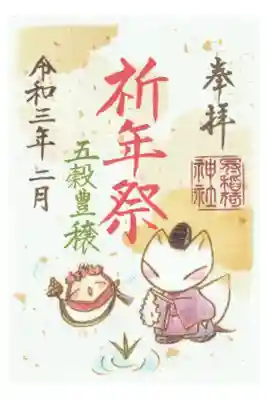 奉拝
神社
祈年祭
五穀豊穣
令和三年二月